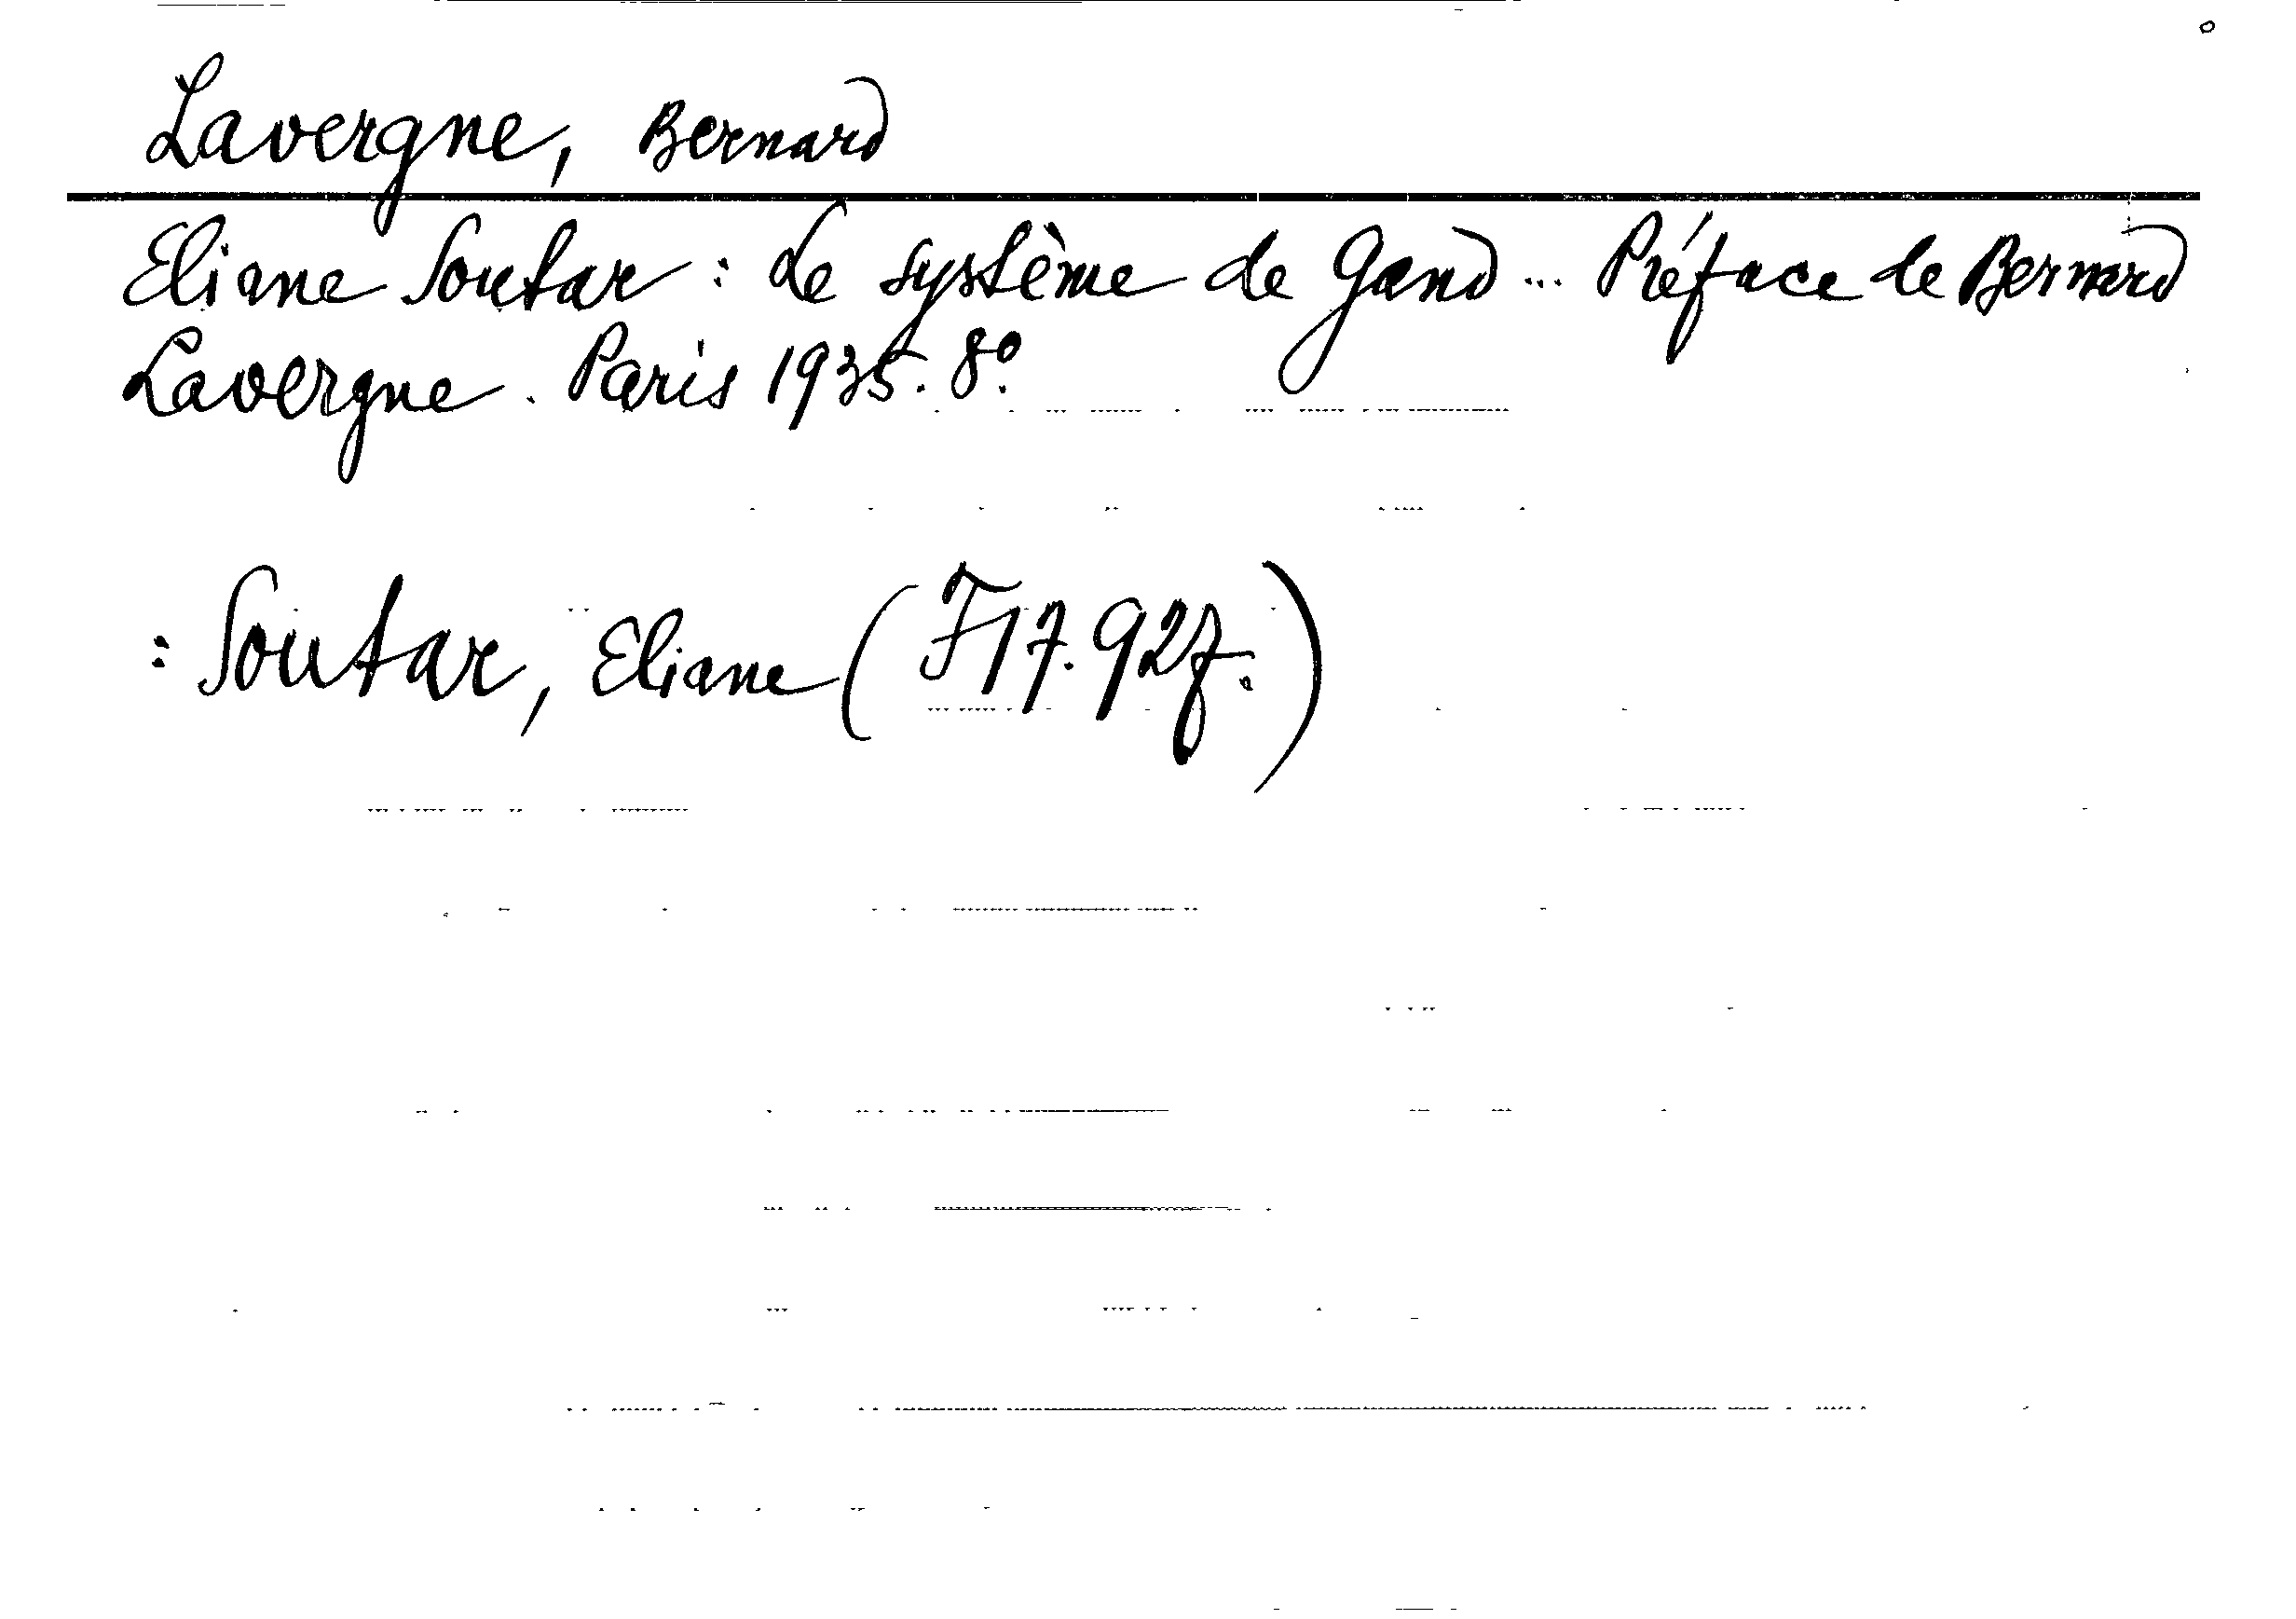 Lavergne, Bernard
Eliane Soutar : Le système de Gand ... Préface de Bernard
Lavergne. Paris 1935. 8º.
: Soutar, Eliane (F17.927.)